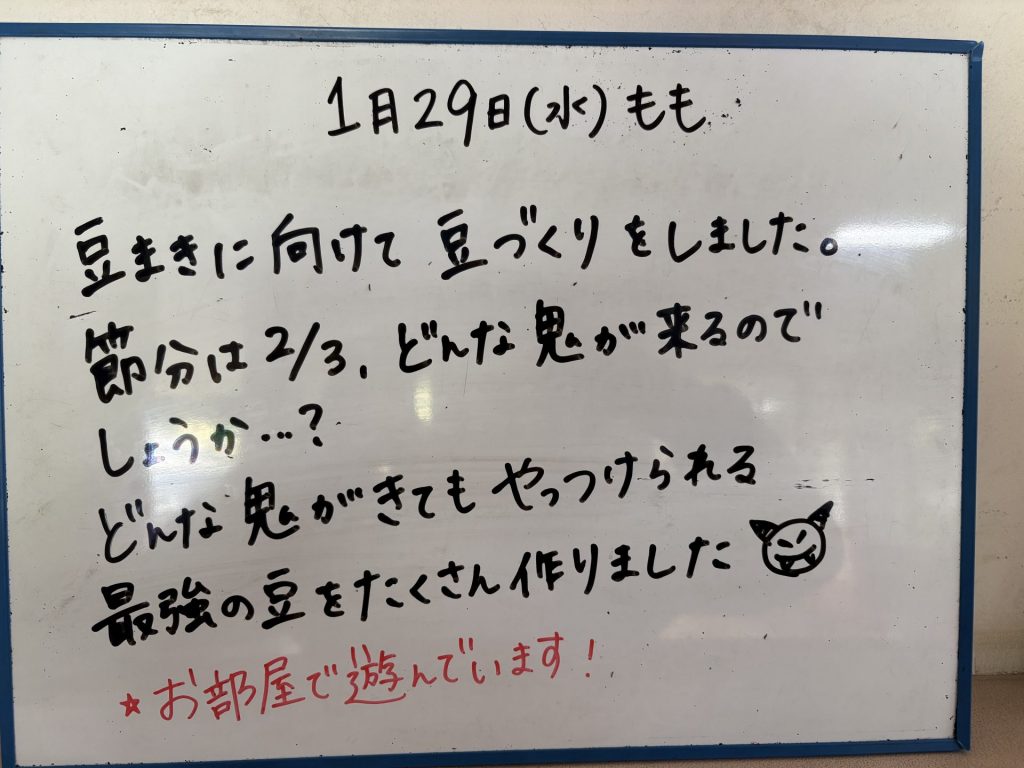 1月29日(水)もも
豆まきに向けて 豆づくりをしました。
節分は2/3、どんな鬼が来るので
しょうか…?
どんな鬼がきてもやっつけられる
最強の豆をたくさん作りました
☆お部屋で遊んでいます!